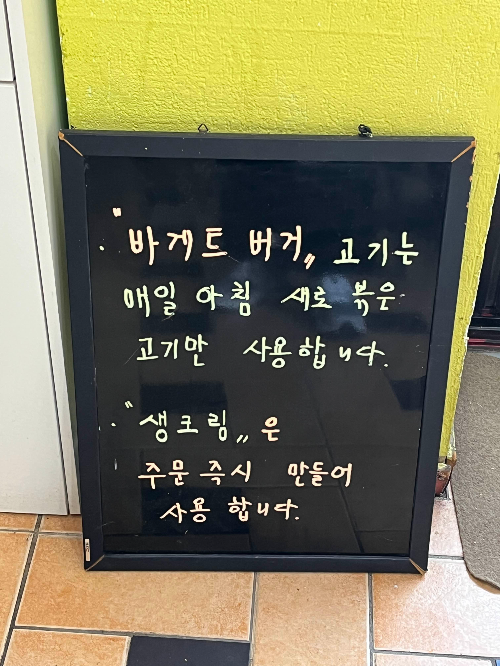 · "바게트 버거„ 고기는
매일 아침 새로 볶은
고기만 사용합니다.
· "생크림„ 은
주문 즉시 만들어
사용 합니다.